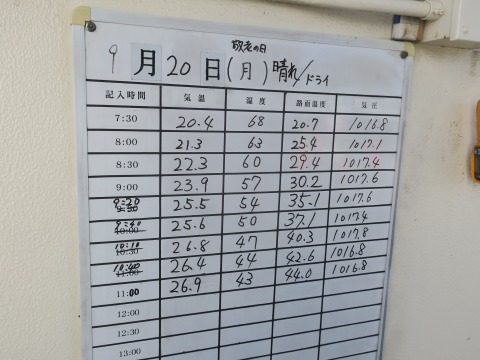 敬老の日
9月20日(月) 晴れ/ドライ
記入時間 気温 湿度 路面温度 気圧
7:30 20.4 68 20.7 1016.8
8:00 21.3 63 25.4 1017.1
8:30 22.3 60 29.4 1017.4
9:00 23.9 57 30.2 1017.6
9:20 9:30 25.5 54 35.1 1017.6
9:40 10:00 25.6 50 37.1 1017.4
10:10 10:30 26.8 47 40.3 1017.8
10:40 11:00 26.4 44 42.6 1016.8
11:00 26.9 43 44.0 1016.8
12:00
12:30
13:00